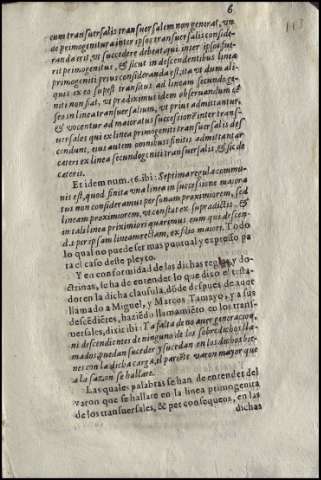 6
113
cum transuersalis transuersalem non generat, un
de primogenitura inter ipsos transuersalis conside-
randa est, ut succedere debeat qui inter ipsos fue-
rit primogenitus, & sicut in descendentibus linea
primogeniti prius consideranda est, ita ut dum ali-
quis ex eo superest transitus, ad lineam secundoge-
niti non fiat, ut prædiximus idem obseruandum &
seos in linea transuersalium, ut prius admittantur,
& vocentur ad maioratus successionẽ inter trans-
uersales qui ex linea primogeniti transuersalis des
cendunt, eius autem omnibus finitis admittantur
cæteri ex linea secundogeniti transuersalis & sic de
cæteris.
Et idem num. 16. ibi: Septima regula commu-
nis est, quod finita una linea in successione maiora
tus non consideramus personam proximiorem, sed
lineam proximiorem, ut constat ex supradictis. &
in tali linea primiori quæremus eum qui descen-
d. per ipsam lineam rectam, ex filio maiore. Todo
lo qual no puede ser mas puntual y expresso pa
ra el caso deste pleyto.
Y en conformidad de las dichas reglas, y do-
ctrinas, se ha de entender lo que dixo el testa-
dor en la dicha clausula, dõde despues de auer
llamado a Miguel, y Marcos Tamayo, y a sus
descẽdiẽtes, haziẽdo llamamiẽto en los trans-
uersales, dixe ibi: Y a falta de no auer generacion,
ni descendientes de ninguno de los sobredichos lla-
mados, puedan suceder y sucedan en los dichos bie-
nes con la dicha carga, el pariẽte varon mayor que
a la sazon se hallare.
Las quales palabras se han de entender del
varon que se hallare en la linea primogenita
de los transuersales, & per consequens, en las
dichas